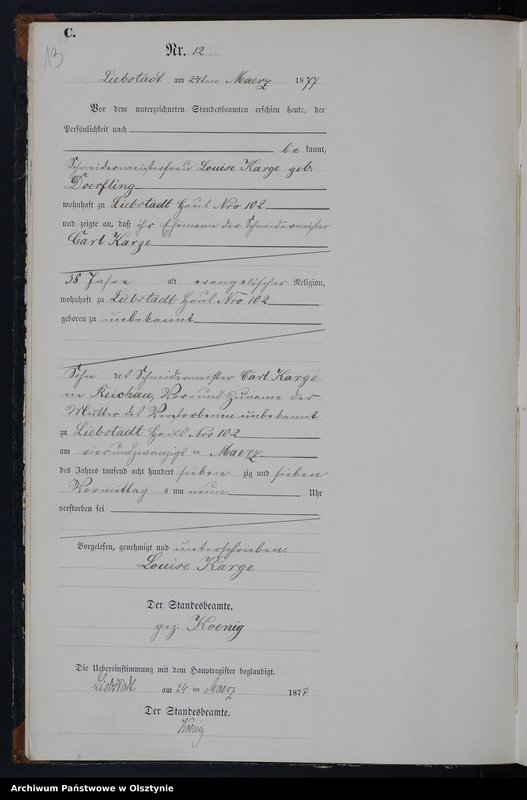 C.
13
Nr. 12
Liebstadt am 24ten Maerz 1877
Vor dem unterzeichneten Standesbeamten erschien heute, der
Persönlichkeit nach
bekannt,
Schneidermeisterfrau Louise Karge geb.
Doerfling
wohnhaft zu Liebstadt Haus Nro 102
und zeigte an, daß ihr Ehemann der Schneidermeister
Carl Karge
38 Jahre alt evangelischer Religion,
wohnhaft zu Liebstadt Haus Nro 102
geboren zu unbekannt
Sohn des Schneidermeister Carl Karge
in Reichau, Vor und Zuname der
Mutter des Verstorbenen unbekannt
zu Liebstadt Haus Nro 102
am vierundzwanzigsten Maerz
des Jahres tausend acht hundert sieben zig und sieben
Vormittags um neun Uhr
verstorben sei
Vorgelesen, genehmigt und unterschrieben.
Louise Karge
Der Standesbeamte.
gez. Koenig
Die Uebereinstimmung mit dem Hauptregister beglaubigt.
Liebstadt am 24ten Maerz 1877
Der Standesbeamte.
Koenig
Archiwum Państwowe w Olsztynie